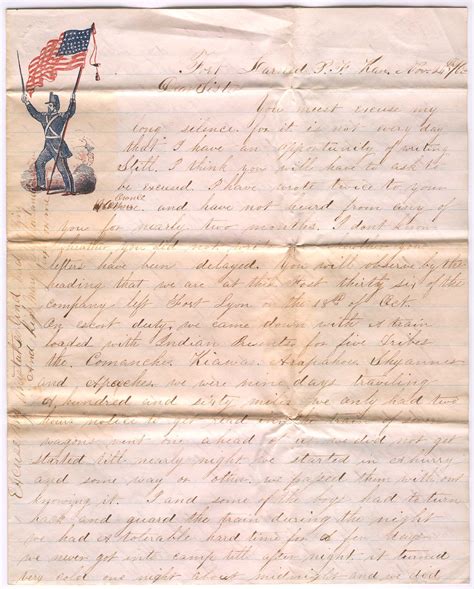 Fort Larned P. F. Kan. Nov. 24th
Dear Sister
You must excuse my
long silence. for it is not every day
that I have an opportunity of writing
Still I think you will have to ask to
be excused. I have wrote twice to you
once
and have not heard from any of
you for nearly two months. I dont know
wheather you did not
letters have been delayed. You will observe by the
heading that we are at this Post thirty six of the
company left Fort Lyon on the 18th of Oct.
On escort duty, we came down with A train
loaded with Indian Presents for five Tribes
the Comanches Kiawas Arapahoes Shyannes
and Apaches. we were nine days traveling
A hundred and sixty miles we only had two
hours notice to get ready in the train of
wagons went on ahead of us we did not get
started till nearly night we started in A hurry
and some way or other we passed them without
knowing it. I and some of the boys had to turn
back and guard the train during the night
we had A tolerable hard time for A few days
we never got into camp till after night it turned
very cold one night about midnight and we did